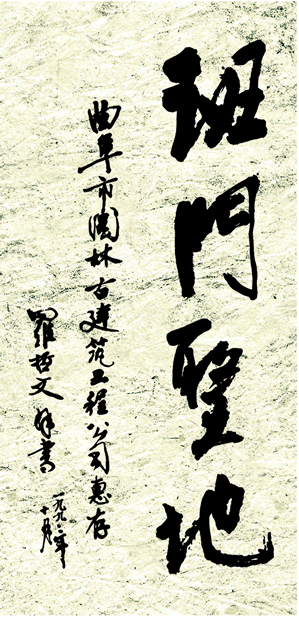 班門聖地
曲阜市園林古建筑工程公司惠存
羅哲文 拜書
一九九二年
十月